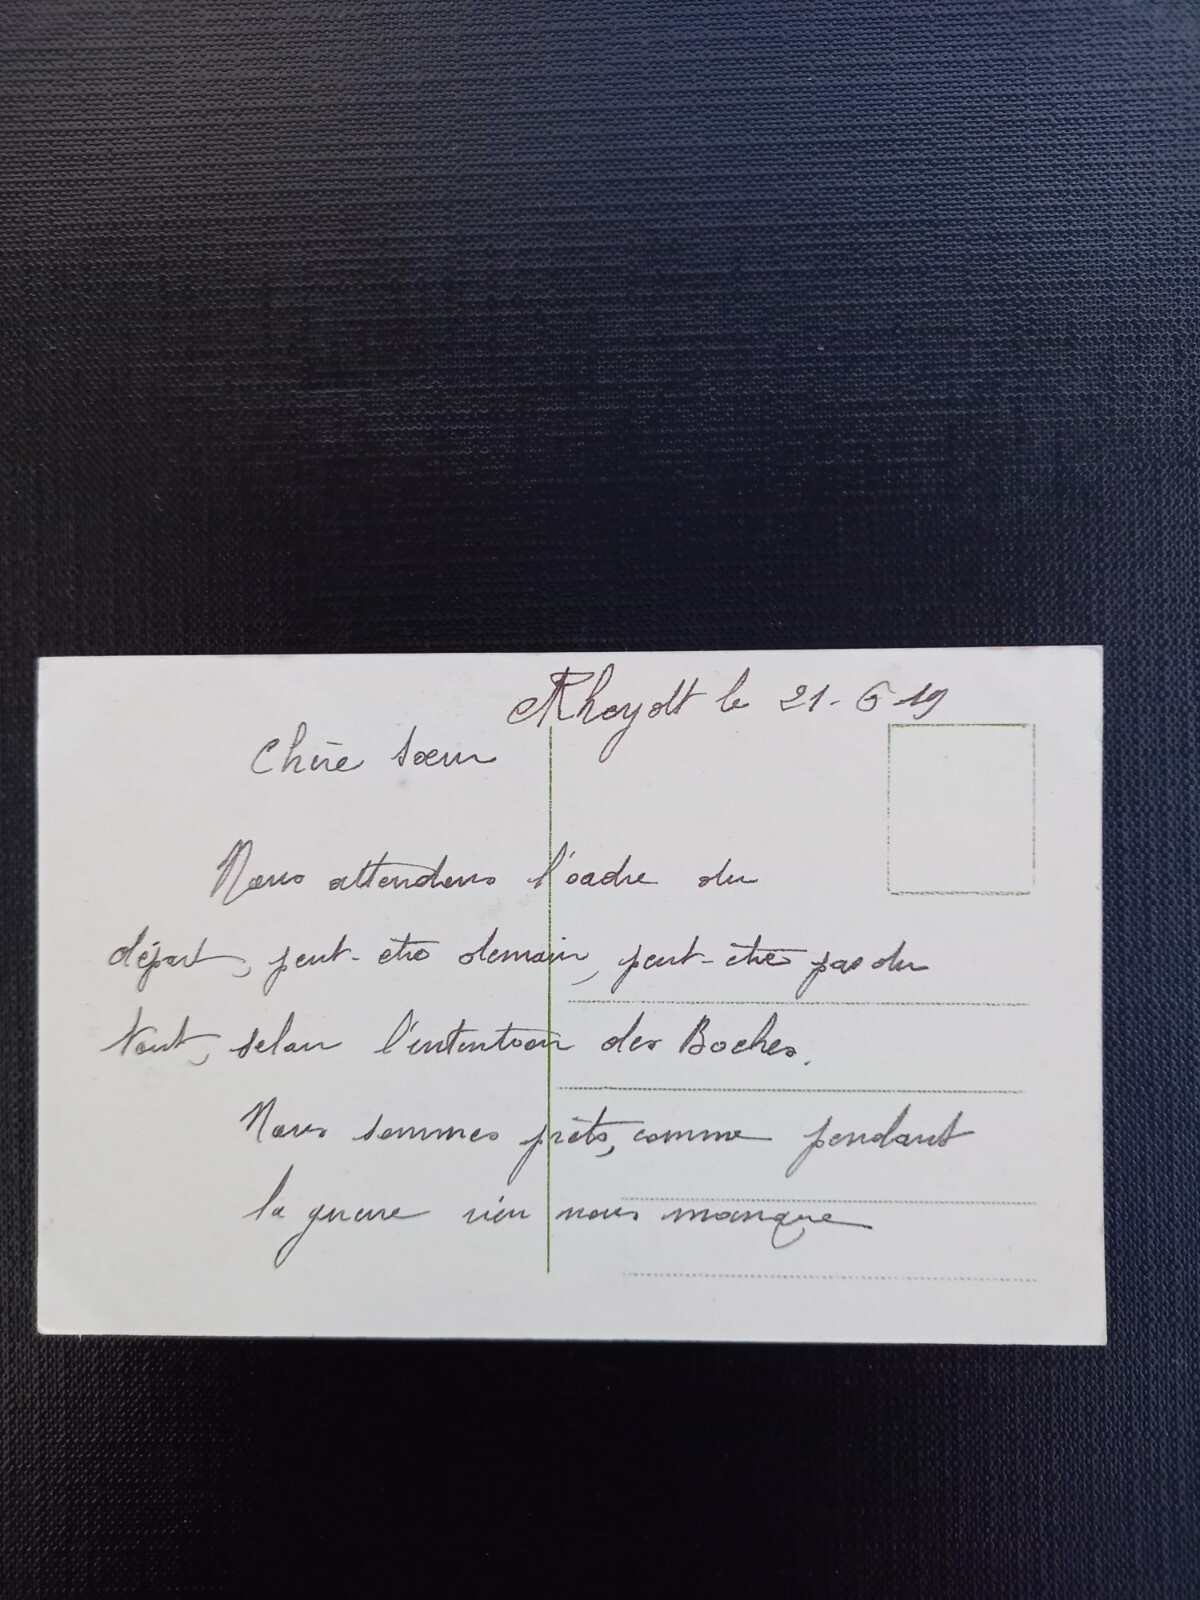 Rheydt le 21-6-19
Chère sœur
Nous attendons l'ordre du
départ, peut-être demain, peut-être pas du
tout, selon l'intention des Boches.
Nous sommes prêts, comme pendant
la guerre rien nous manque